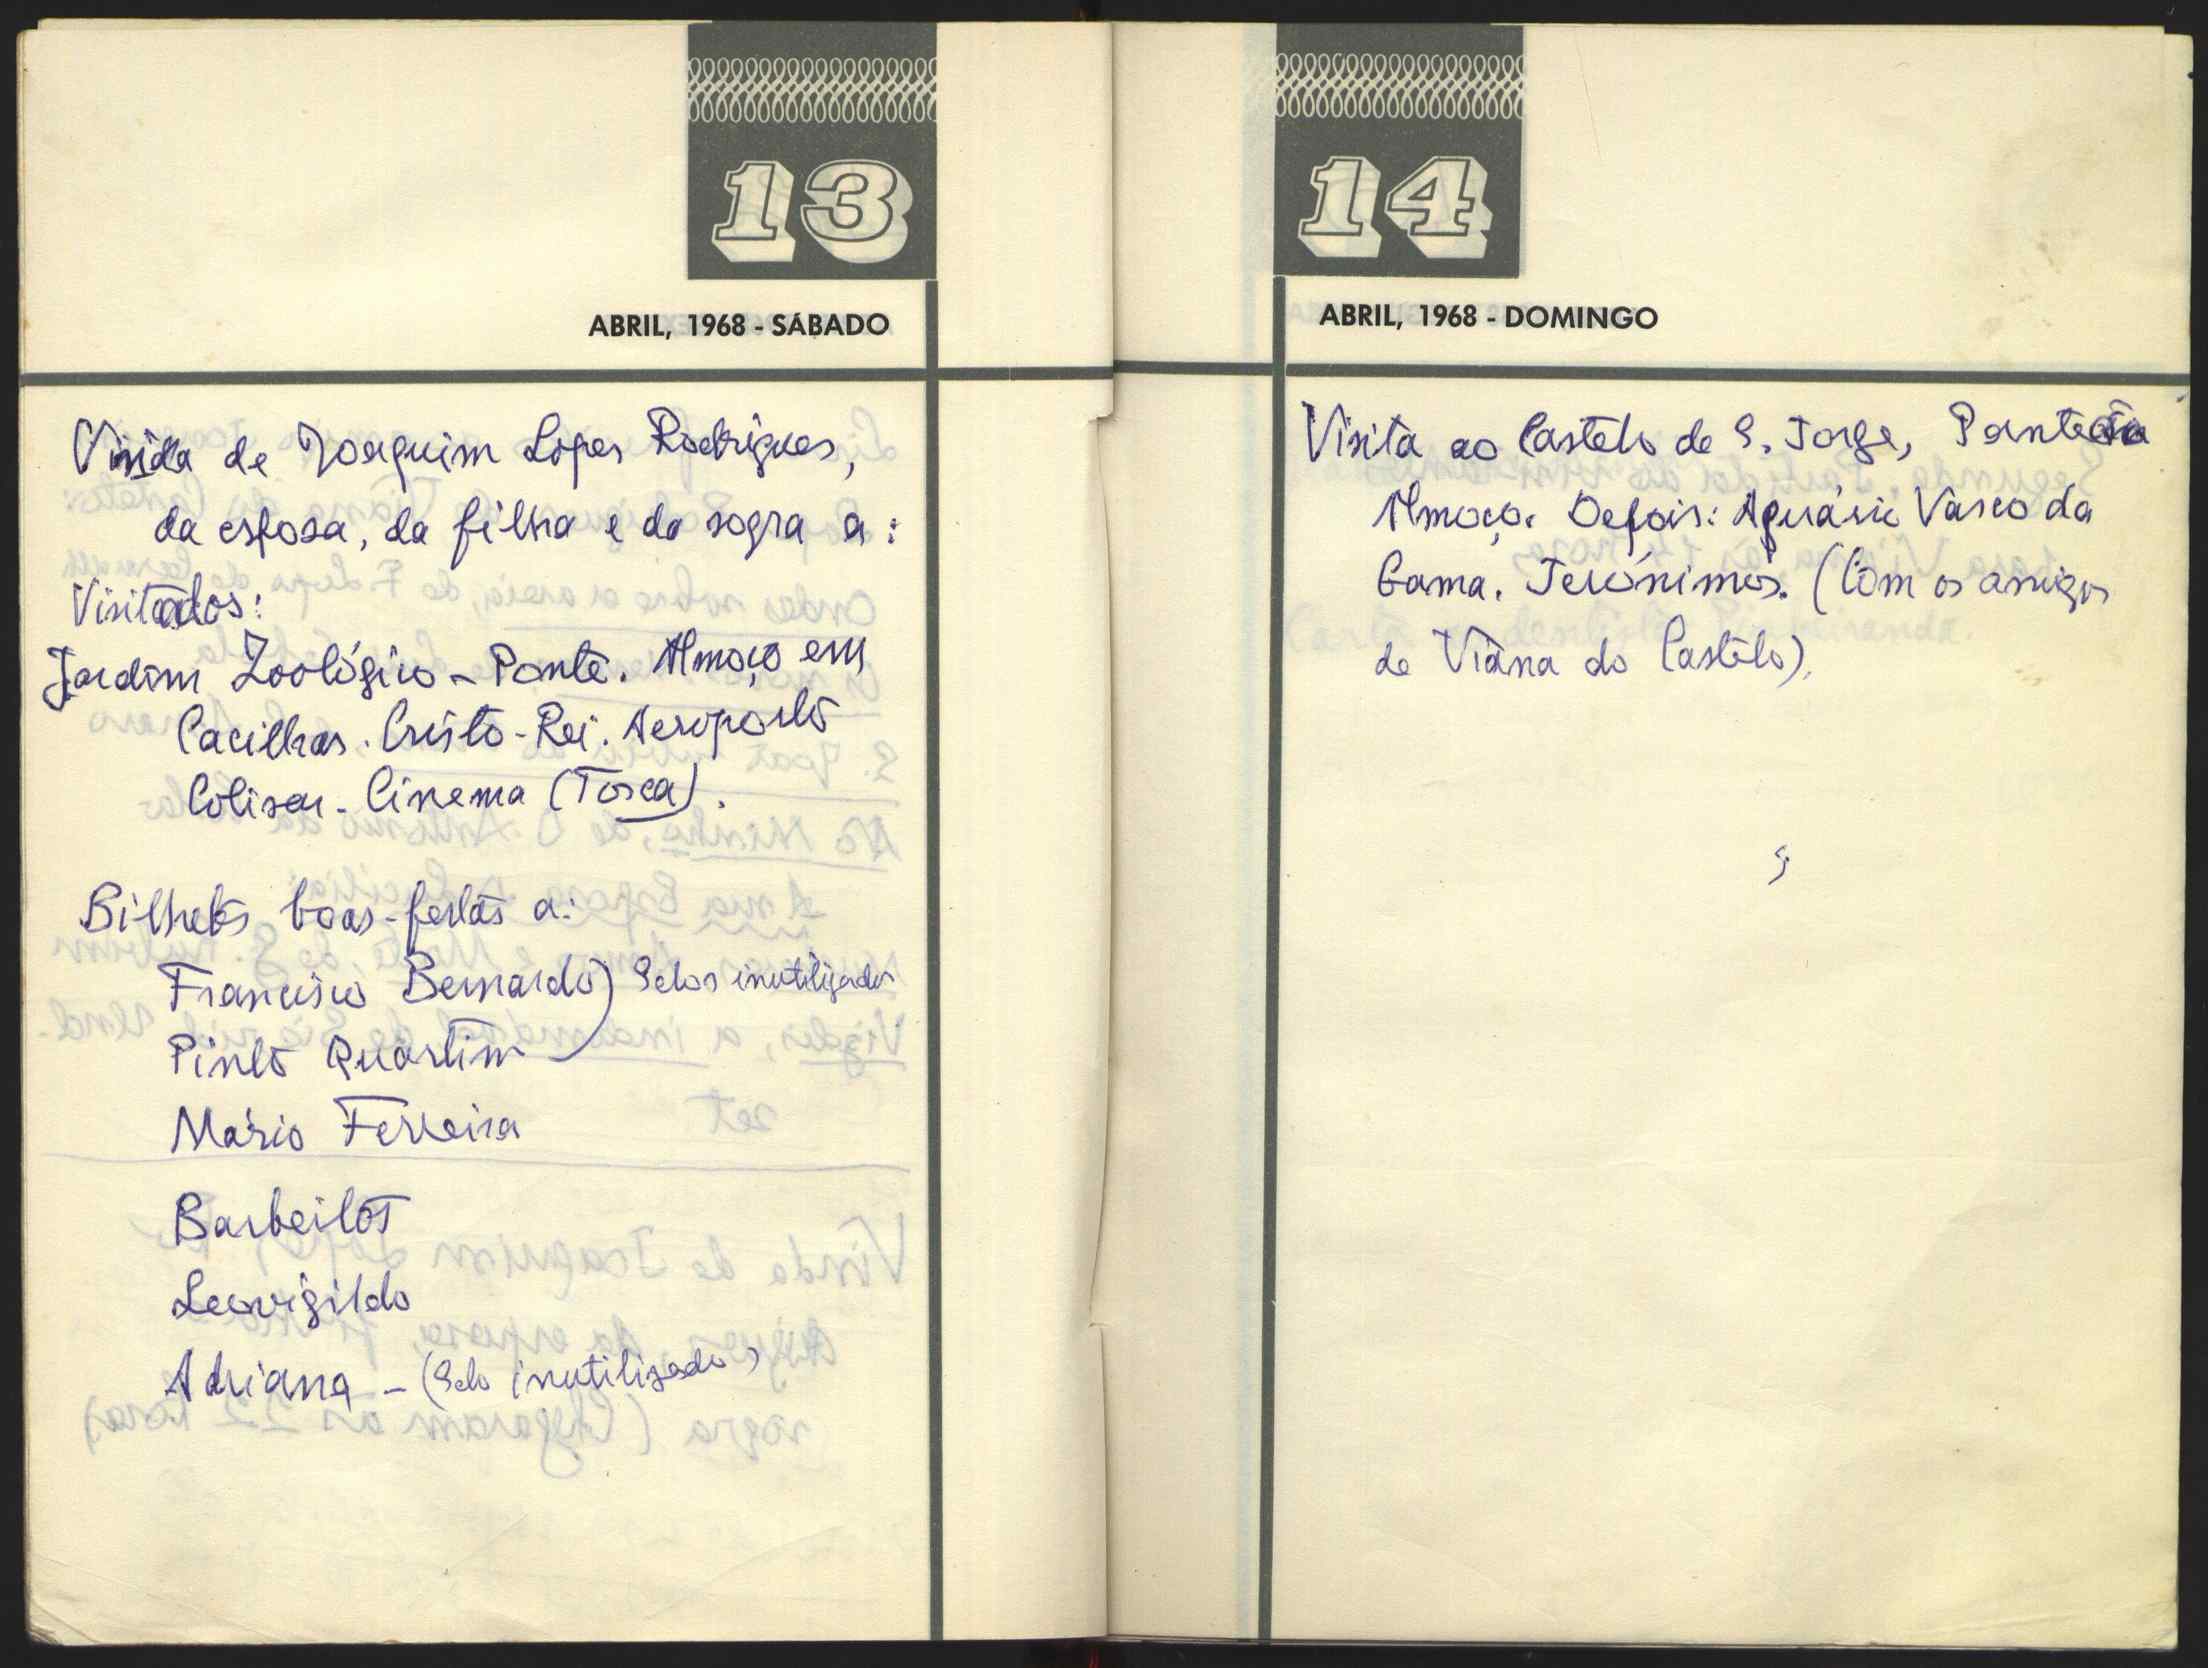 13
ABRIL, 1968 - SÁBADO
Visita de Joaquim Lopes Rodrigues,
da esposa, da filha e da sogra a:
Visitados:
Jardim Zoológico - Ponte. Almoço em
Cacilhas. Cristo-Rei. Aeroporto
Coliseu - Cinema (Tosca).
Bilhetes boas-festas a:
Francisco Bernardo) Selos inutilizados
Pinto Quartim
Mário Ferreira
Barbeitos
Leovigildo
Adriana - (Selo inutilizado)
14
ABRIL, 1968 - DOMINGO
Visita ao Castelo de S. Jorge, Panteão
Almoço. Depois: Aquário Vasco da
Gama. Jerónimos. (Com os amigos
de Viana do Castelo).